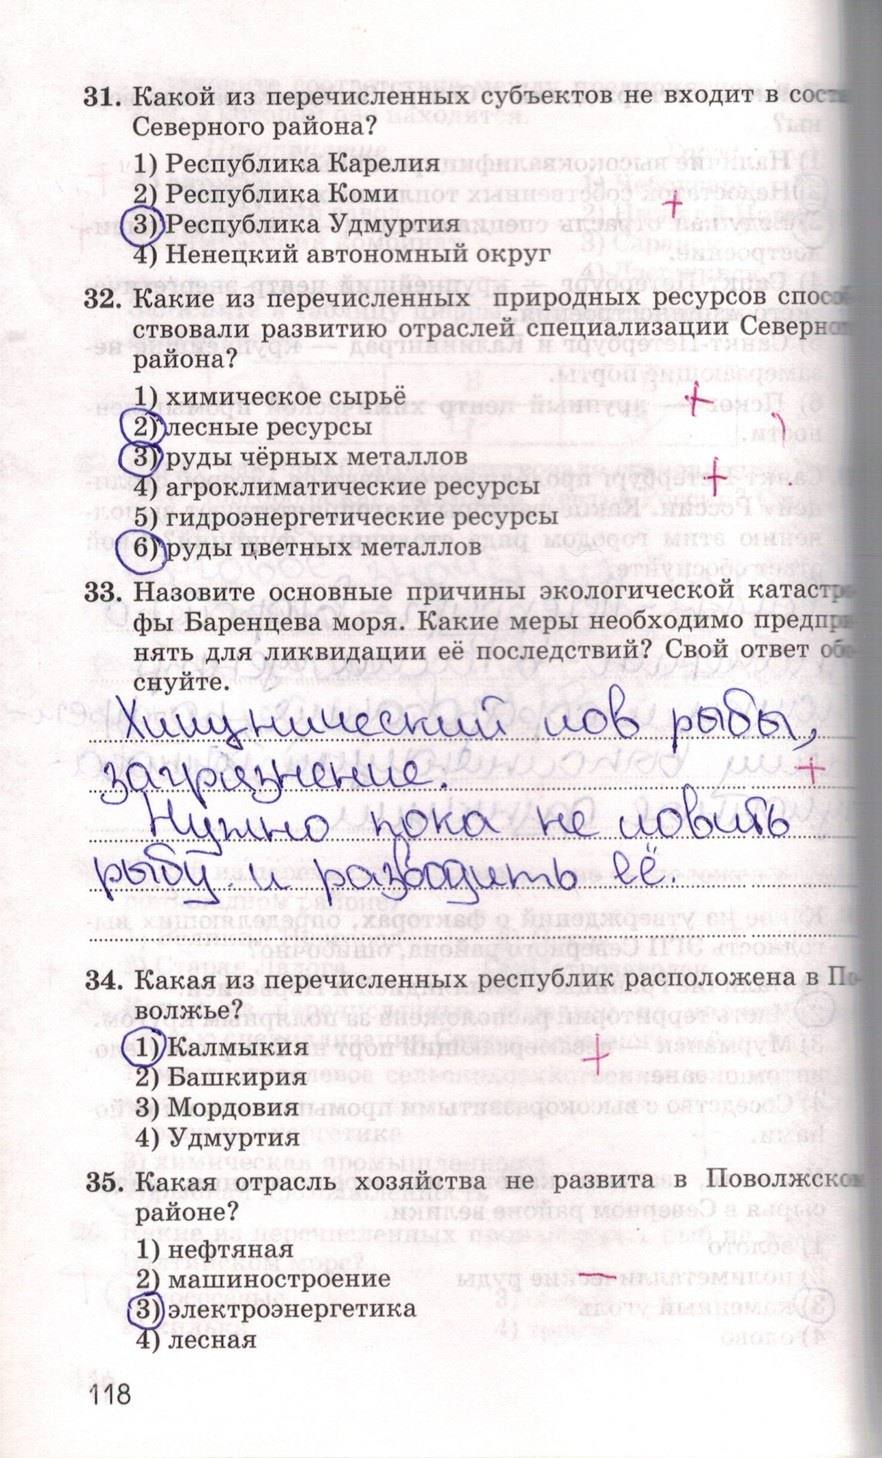 31. Какой из перечисленных субъектов не входит в сост
Северного района?
1) Республика Карелия
2) Республика Коми
3) Республика Удмуртия
4) Ненецкий автономный округ
32. Какие из перечисленных природных ресурсов спосо
ствовали развитию отраслей специализации Северн
района?
1) химическое сырьё
2) лесные ресурсы
3) руды чёрных металлов
4) агроклиматические ресурсы
5) гидроэнергетические ресурсы
6) руды цветных металлов
33. Назовите основные причины экологической катастр
фы Баренцева моря. Какие меры необходимо предпр
нять для ликвидации её последствий? Свой ответ обо
снуйте.
Хищнический лов рыбы,
загрязнение.
Нужно пока не ловить
рыбу и разводить её.
34. Какая из перечисленных республик расположена в По
волжье?
1) Калмыкия
2) Башкирия
3) Мордовия
4) Удмуртия
35. Какая отрасль хозяйства не развита в Поволжско
районе?
1) нефтяная
2) машиностроение
3) электроэнергетика
4) лесная
118